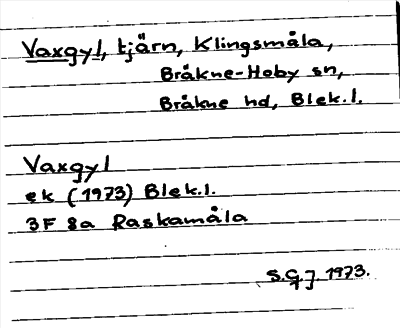 Vaxgyl, tjärn, Klingsmåla,
Bråkne-Hoby sn,
Bråkne hd, Blek.l.
Vaxgyl
ek (1973) Blek.l.
3F 8a Raskamåla
S.G.J. 1973.